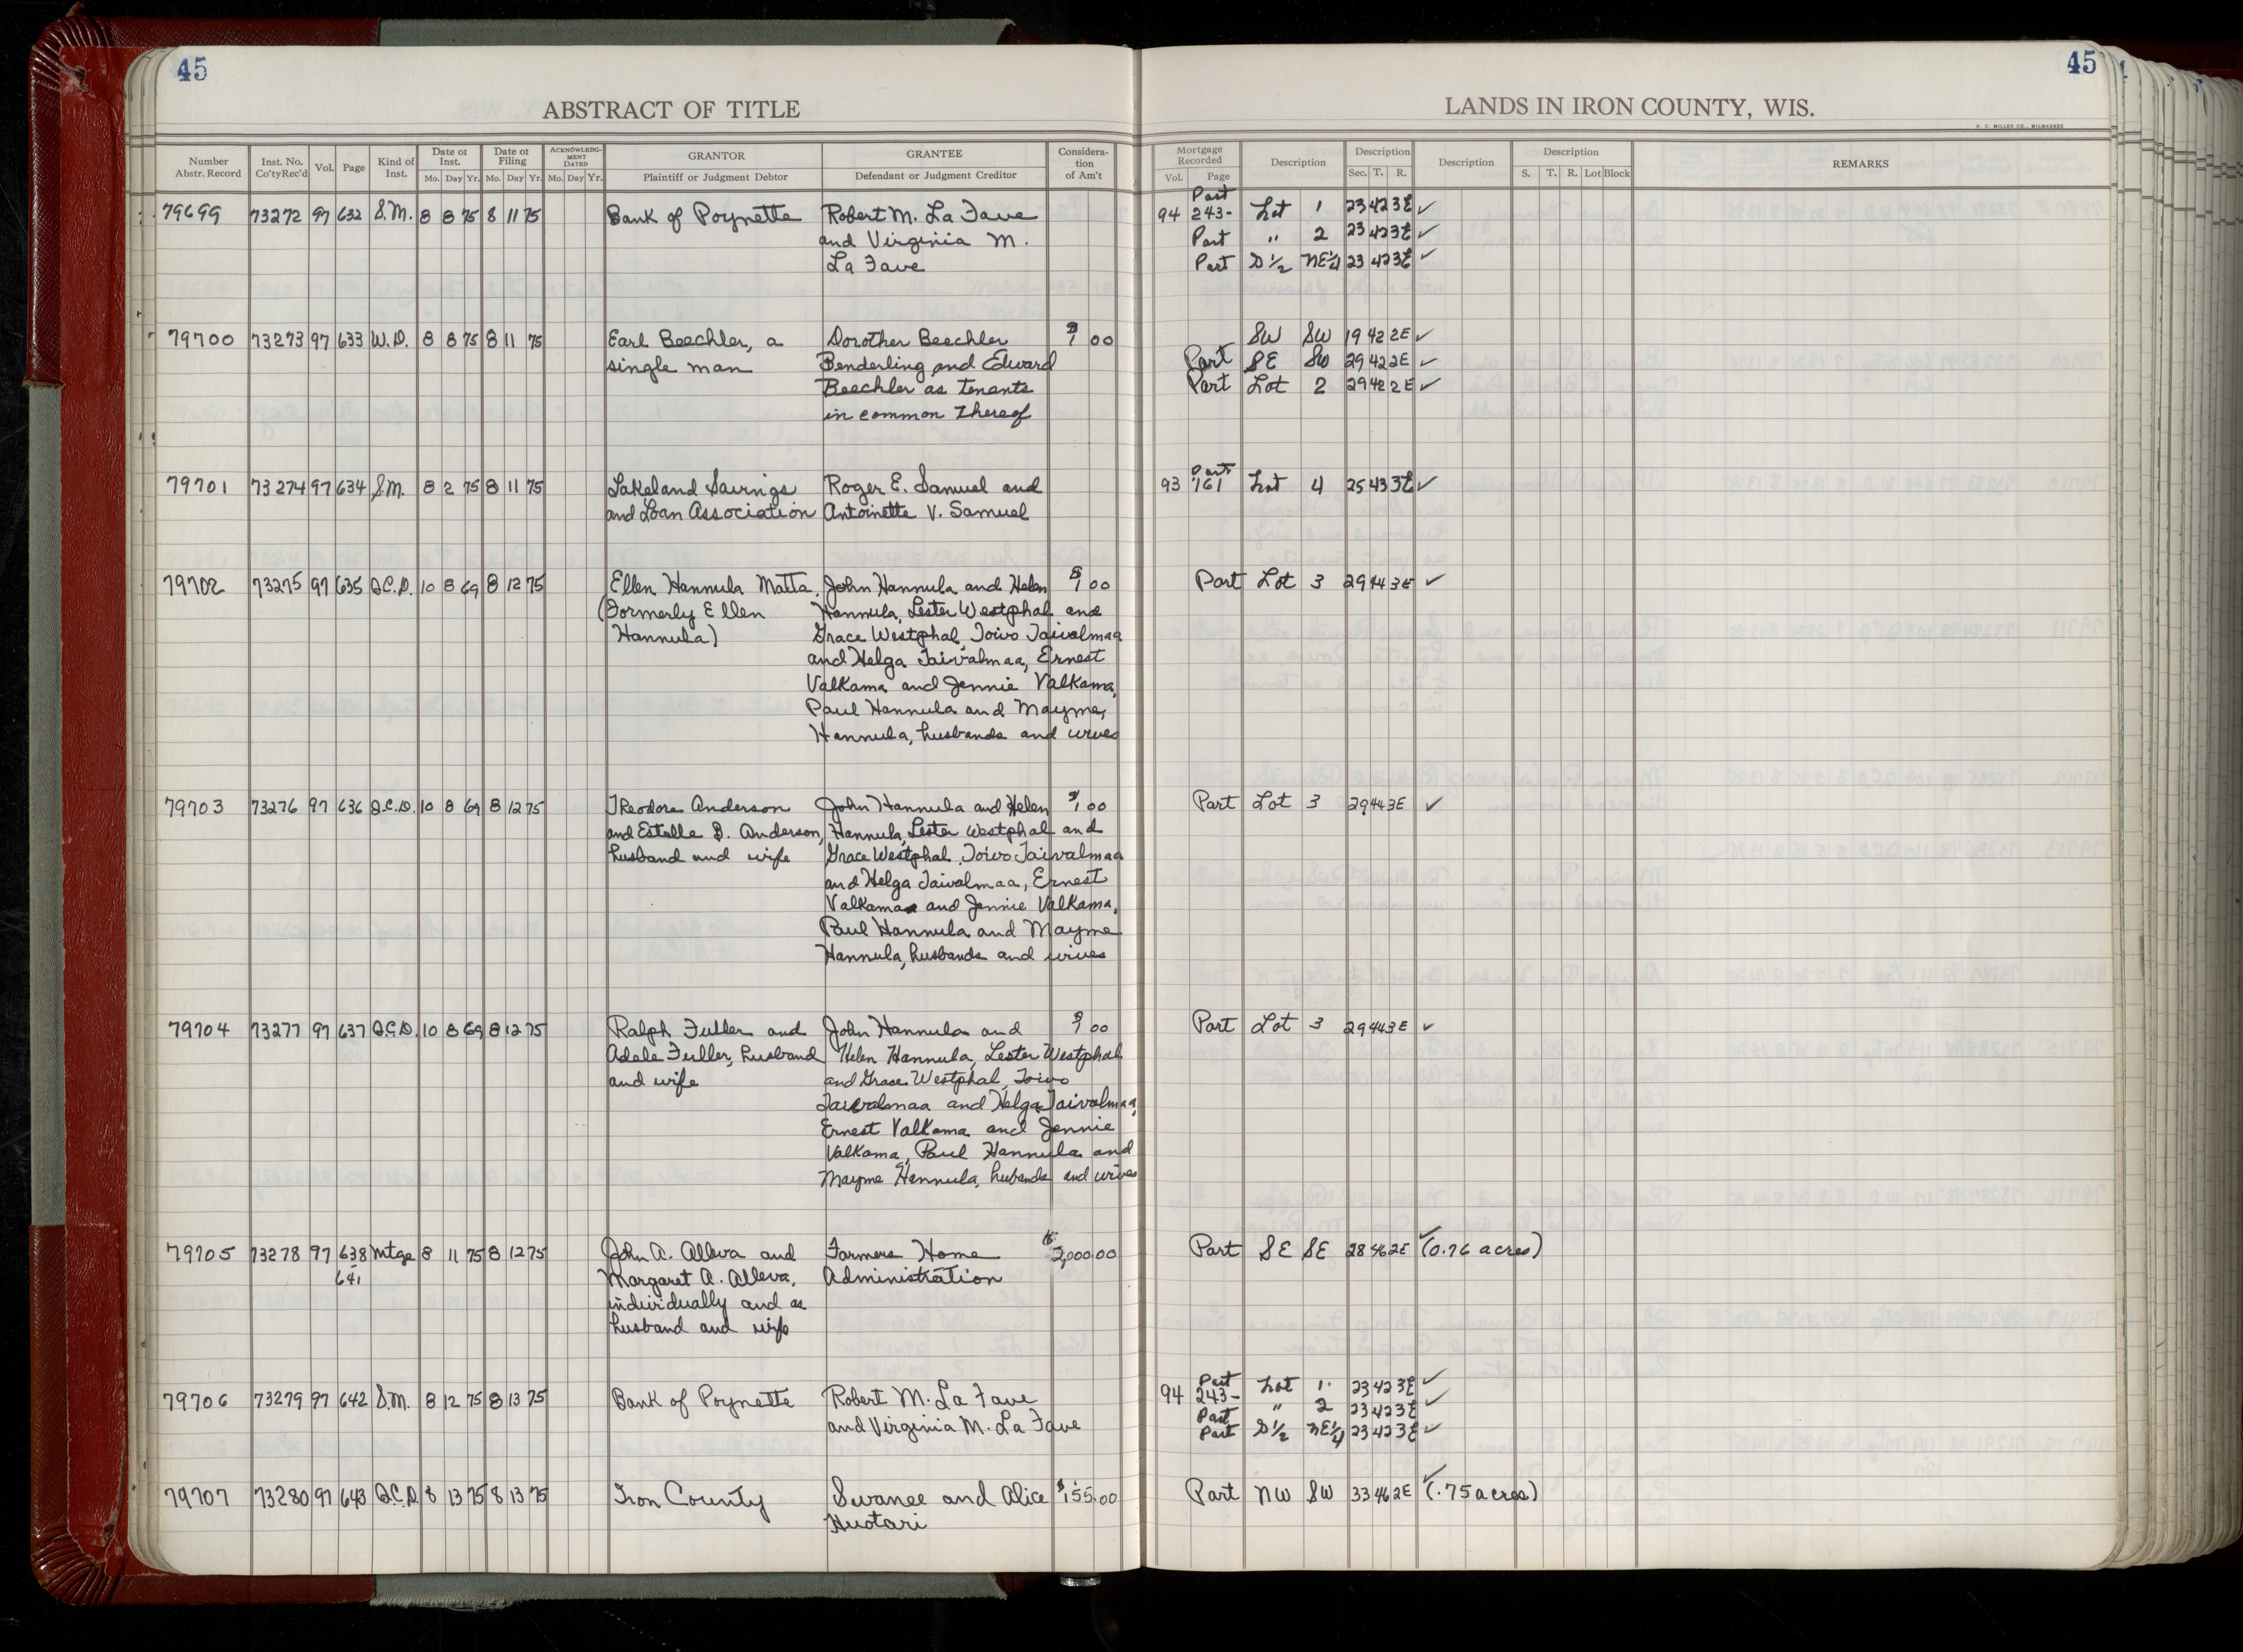 45
ABSTRACT OF TITLE
Number Abstr. Record | Inst. No. Co'ty Rec'd | Vol. | Page | Kind of Inst. | Date of Inst. Mo. Day Yr. | Date of Filing Mo. Day Yr. | ACKNOWLEDGMENT DATED Mo. Day Yr. | GRANTOR Plaintiff or Judgment Debtor | GRANTEE Defendant or Judgment Creditor | Consideration of Am't
79699 73272 97 632 S.M. 8 8 75 8 11 75 Bank of Poynette Robert M. La Fave
and Virginia M.
La Fave
79700 73273 97 633 W.D. 8 8 75 8 11 75 Earl Beechler, a Dorother Beechler $1 00
single man Benderling and Edward
Beechler as tenants
in common thereof
79701 73274 97 634 S.M. 8 2 75 8 11 75 Lakeland Savings Roger E. Samuel and
and Loan Association Antoinette V. Samuel
79702 73275 97 635 Q.C.D. 10 8 69 8 12 75 Ellen Hannula Matta, John Hannula and Helen $1 00
(Formerly Ellen Hannula, Lester Westphal and
Hannula) Grace Westphal, Toivo Taivalmaa
and Helga Taivalmaa, Ernest
Valkama and Jennie Valkama,
Paul Hannula and Mayme,
Hannula, husbands and wives
79703 73276 97 636 Q.C.D. 10 8 69 8 12 75 Theodore Anderson John Hannula and Helen $1 00
and Estelle B. Anderson, Hannula, Lester Westphal and
husband and wife Grace Westphal, Toivo Taivalmaa
and Helga Taivalmaa, Ernest
Valkama and Jennie Valkama,
Paul Hannula and Mayme
Hannula, husbands and wives
79704 73277 97 637 Q.C.D. 10 8 69 8 12 75 Ralph Fuller and John Hannula and $1 00
Adele Fuller, husband Helen Hannula, Lester Westphal
and wife and Grace Westphal, Toivo
Taivalmaa and Helga Taivalmaa,
Ernest Valkama and Jennie
Valkama, Paul Hannula and
Mayme Hannula, hubands and wives
79705 73278 97 638 Mtge 8 11 75 8 12 75 John A. Alleva and Farmers Home $2,000.00
- 641 Margaret A. Alleva, Administration
individually and as
husband and wife
79706 73279 97 642 S.M. 8 12 75 8 13 75 Bank of Poynette Robert M. La Fave
and Virginia M. La Fave
79707 73280 97 643 Q.C.D. 8 13 75 8 13 75 Iron County Swanee and Alice $155.00
Huotari
45
LANDS IN IRON COUNTY, WIS.
H. C. MILLER CO., MILWAUKEE
Mortgage Recorded Vol. Page | Description | Description Sec. T. R. | Description | Description S. T. R. Lot Block | REMARKS
Part
94 243- Lot 1 23 42 3E ✓
Part " 2 23 42 3E ✓
Part S 1/2 NE 1/4 23 42 3E ✓
SW SW 19 42 2E ✓
Part SE SW 29 42 2E ✓
Part Lot 2 29 42 2E ✓
Part
93 161 Lot 4 25 43 3E ✓
Part Lot 3 29 44 3E ✓
Part Lot 3 29 44 3E ✓
Part Lot 3 29 44 3E ✓
Part SE SE 28 46 2E ✓ (0.76 acres)
Part
94 243- Lot 1 23 42 3E ✓
Part " 2 23 42 3E ✓
Part S 1/2 NE 1/4 23 42 3E ✓
Part NW SW 33 46 2E ✓ (.75 acres)